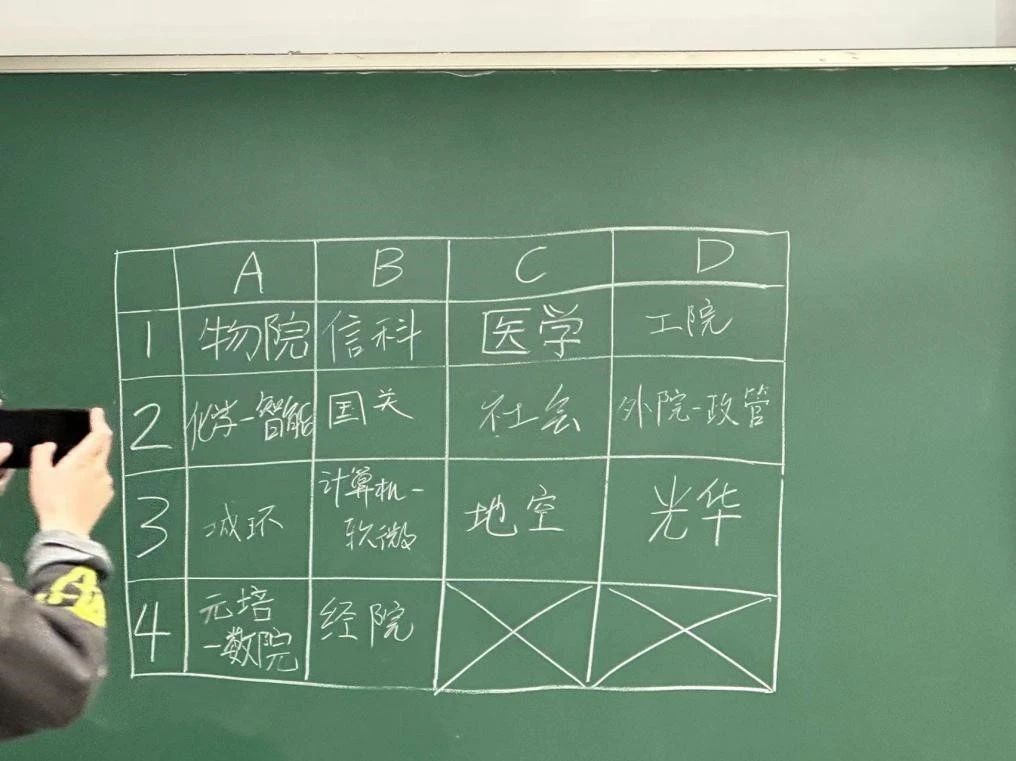 A B C D
1 物院 信科 医学 工院
2 化学-智能 国关 社会 外院-政管
3 城环 计算机- 地空 光华
软微
4 元培 经院
-数院